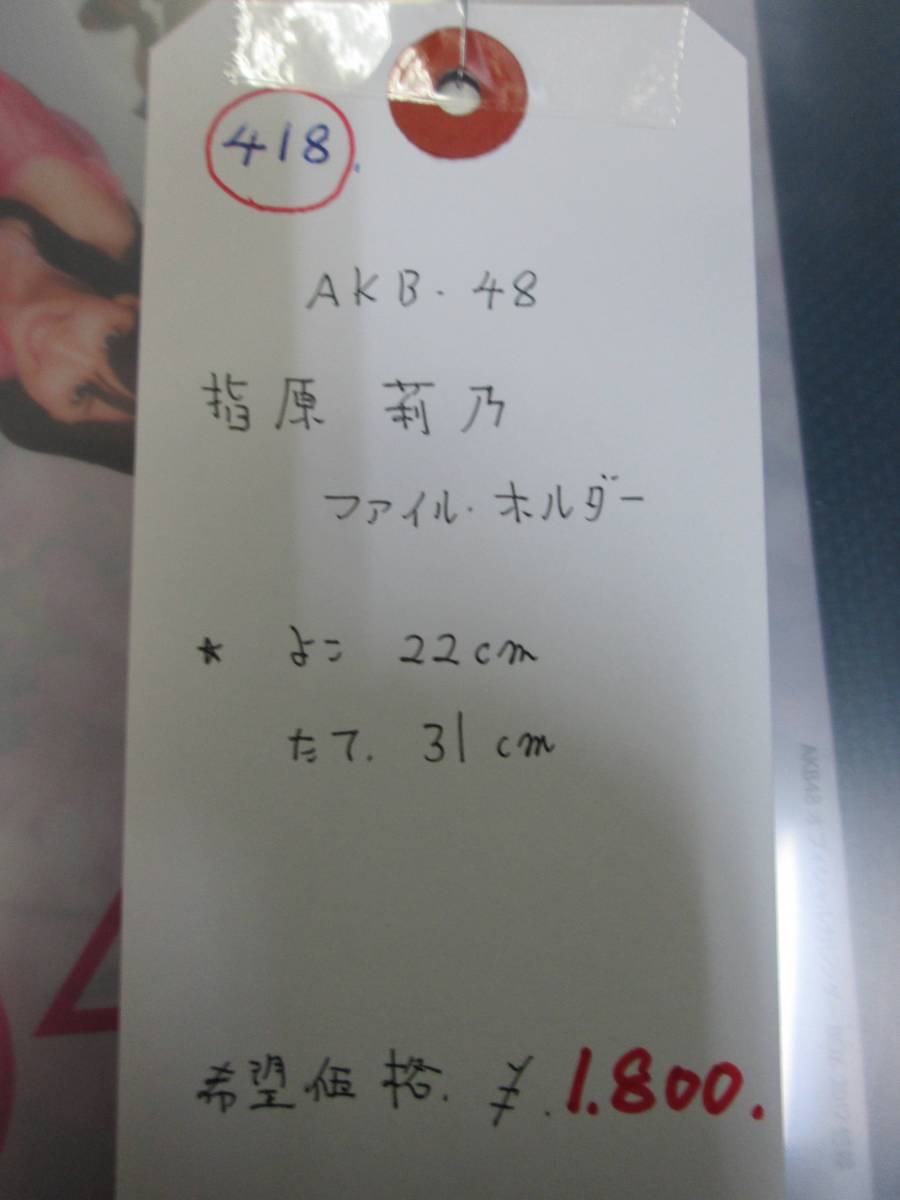 418.
AKB・48
指原 莉乃
ファイル・ホルダー
★ よこ 22cm
たて. 31cm
希望価格. ¥. 1.800.
AKB48